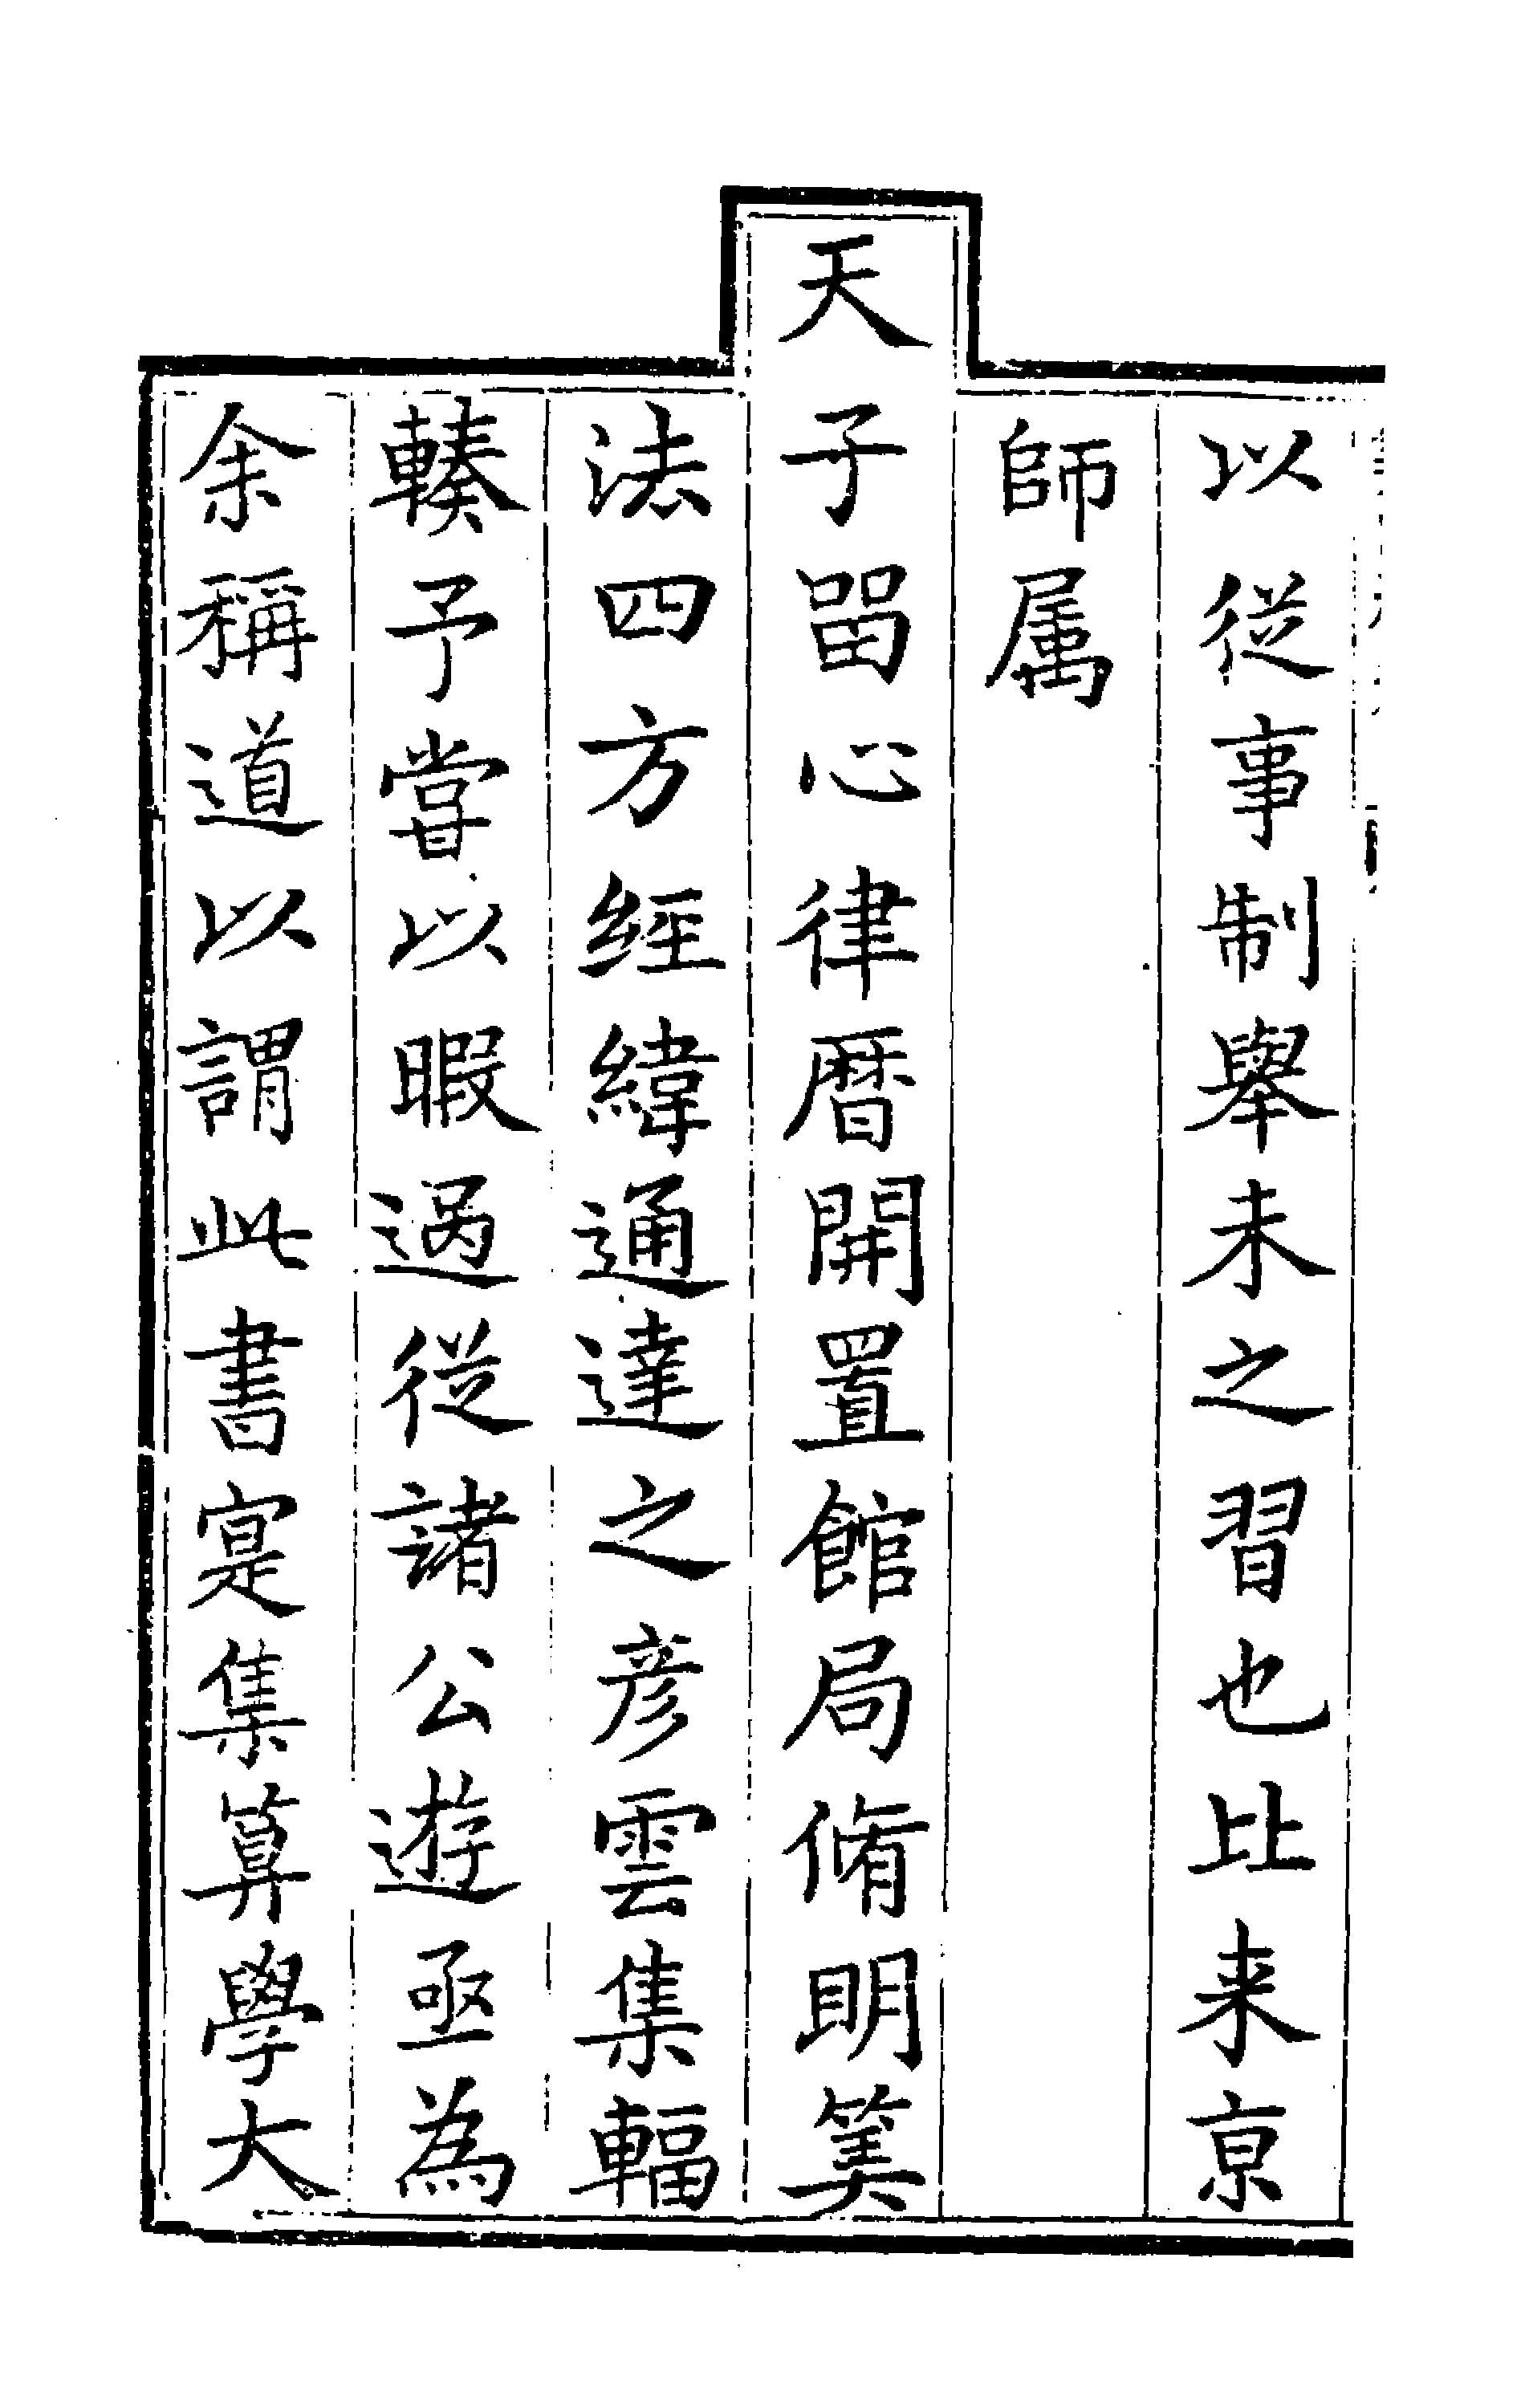 以從事制舉未之習也比来京
師属
天子畱心律曆開置館局脩明筭
法四方經緯通達之彦雲集輻
輳予嘗以暇過從諸公遊亟為
余稱道以謂此書寔集算學大